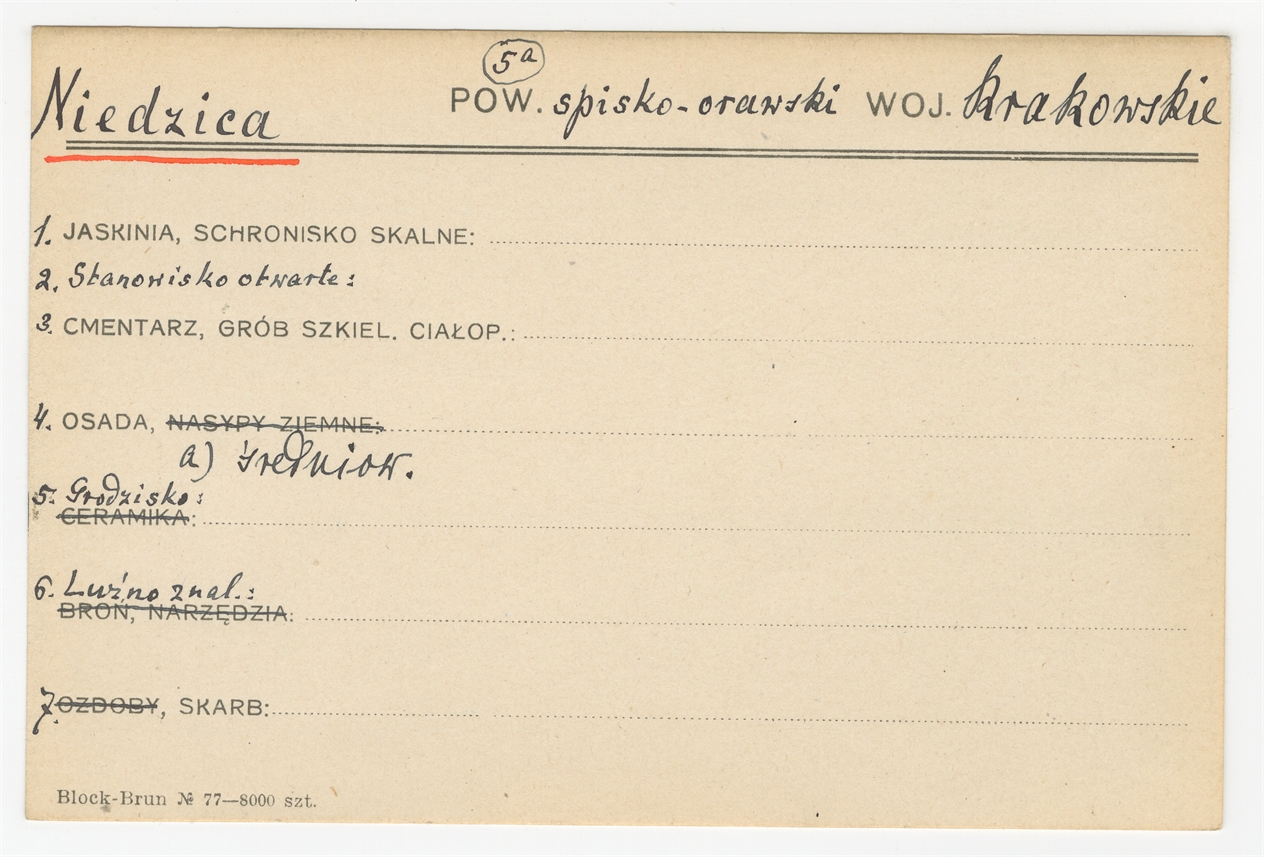 5a
Niedzica POW. spisko-orawski WOJ. Krakowskie
1. JASKINIA, SCHRONISKO SKALNE:
2. Stanowisko otwarte:
3. CMENTARZ, GRÓB SZKIEL. CIAŁOP.:
4. OSADA, NASYPY ZIEMNE:
a) średniow.
5. Grodzisko:
CERAMIKA:
6. Luźno znal.:
BROŃ, NARZĘDZIA:
7. OZDOBY, SKARB:
Block-Brun № 77—8000 szt.